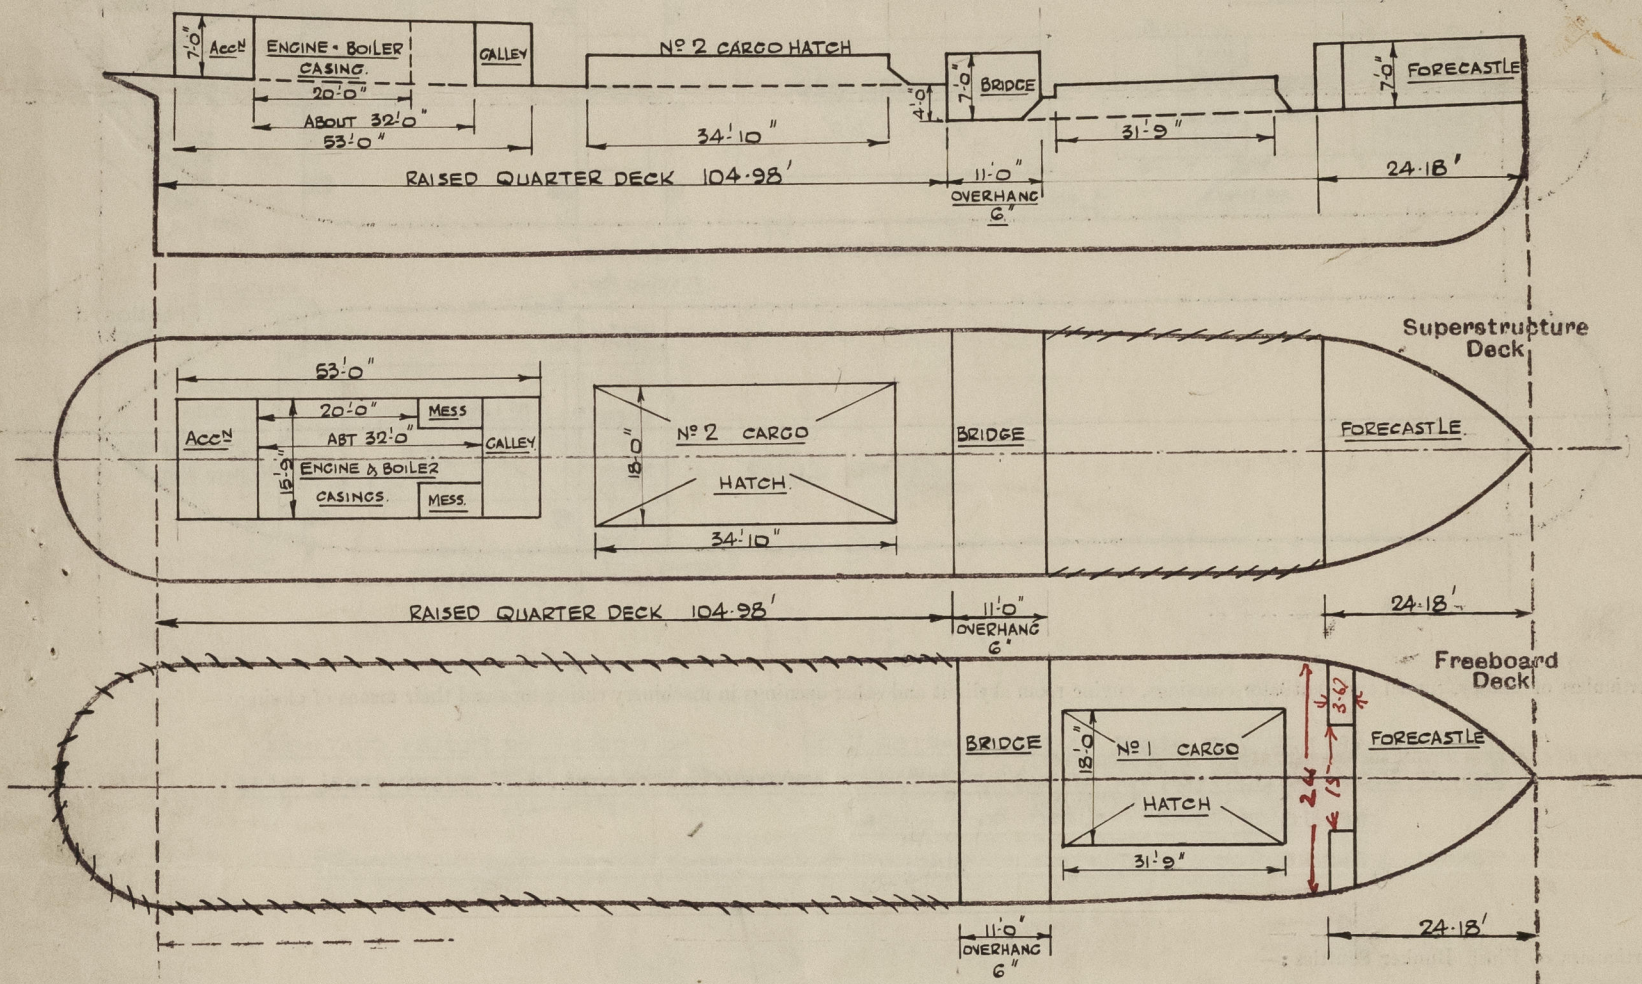 7'-0"
Accᴺ
ENGINE • BOILER
CASING.
20'-0"
ABOUT 32'-0"
53'-0"
GALLEY
Nº 2 CARGO HATCH
34'-10"
4'-0"
7'-0"
BRIDGE
31'-9"
7'-0"
FORECASTLE
RAISED QUARTER DECK 104·98'
11'-0"
OVERHANG
6"
24·18'
Superstructure
Deck
53'-0"
Accᴺ
20'-0"
MESS
ABT 32'-0"
GALLEY
15'-9"
ENGINE & BOILER
CASINGS.
MESS.
18'-0"
Nº 2 CARGO
HATCH.
34'-10"
BRIDGE
FORECASTLE.
RAISED QUARTER DECK 104·98'
11'-0"
OVERHANG
6"
24·18'
Freeboard
Deck
BRIDGE
18'-0"
Nº 1 CARGO
HATCH
31'-9"
3·67
15
FORECASTLE
11'-0"
OVERHANG
6"
24·18'